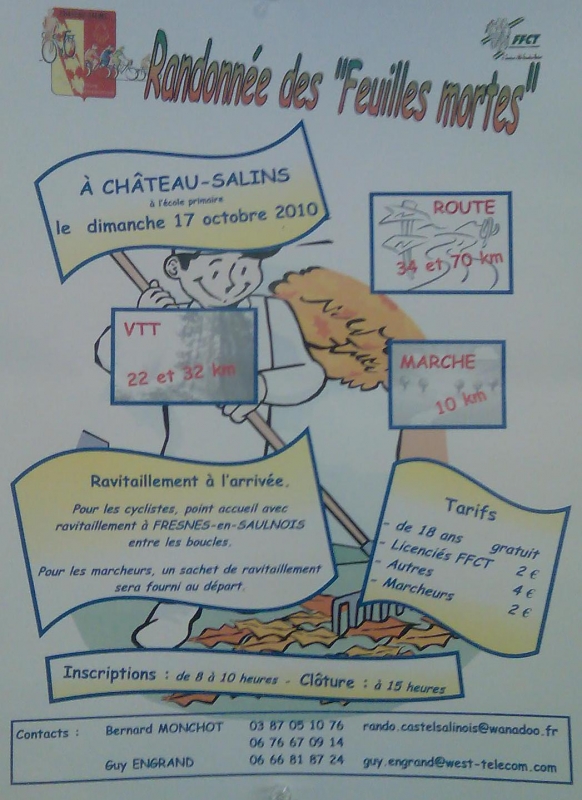 FFCT
Randonnée des "Feuilles mortes"
À CHÂTEAU-SALINS
à l'école primaire
le dimanche 17 octobre 2010
ROUTE
34 et 70 km
VTT
22 et 32 km
MARCHE
10 km
Ravitaillement à l'arrivée.
Pour les cyclistes, point accueil avec
ravitaillement à FRESNES-en-SAULNOIS
entre les boucles.
Pour les marcheurs, un sachet de ravitaillement
sera fourni au départ.
Tarifs
- de 18 ans gratuit
- Licenciés FFCT 2 €
- Autres 4 €
- Marcheurs 2 €
Inscriptions : de 8 à 10 heures - Clôture : à 15 heures
Contacts : Bernard MONCHOT 03 87 05 10 76 rando.castelsalinois@wanadoo.fr
06 76 67 09 14
Guy ENGRAND 06 66 81 87 24 guy.engrand@west-telecom.com